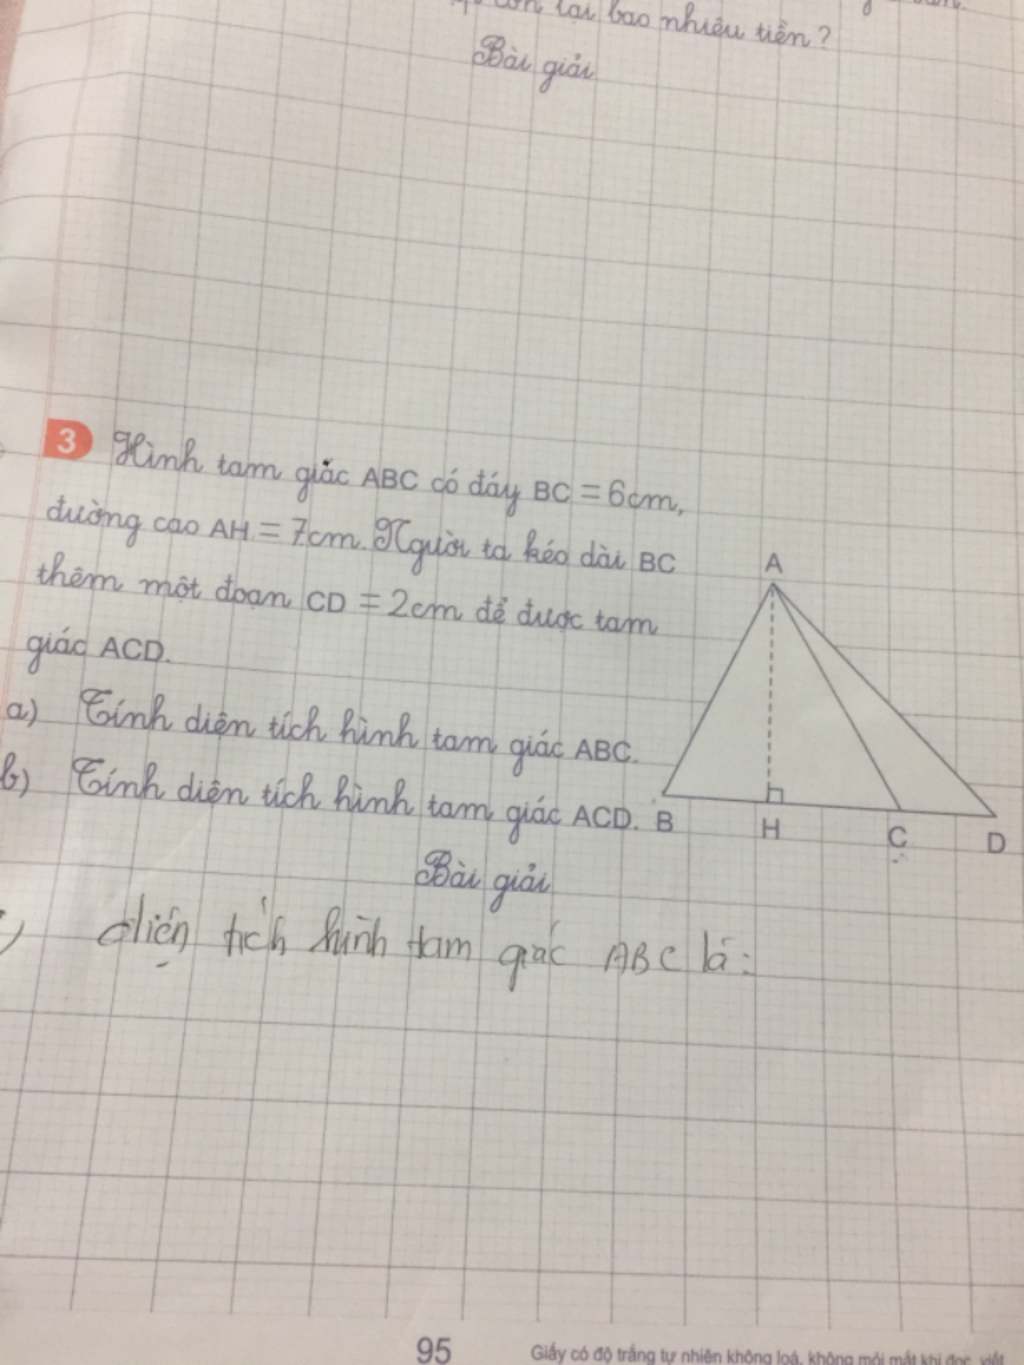 còn lại bao nhiêu tiền?
Bài giải
3 Hình tam giác ABC có đáy BC = 6cm,
đường cao AH = 7cm. Người ta kéo dài BC
thêm một đoạn CD = 2cm để được tam
giác ACD.
a) Tính diện tích hình tam giác ABC.
b) Tính diện tích hình tam giác ACD.
A
B H C D
Bài giải
diện tích hình tam giác ABC là:
95 Giấy có độ trắng tự nhiên không loá, không mỏi mắt khi đọc, viết